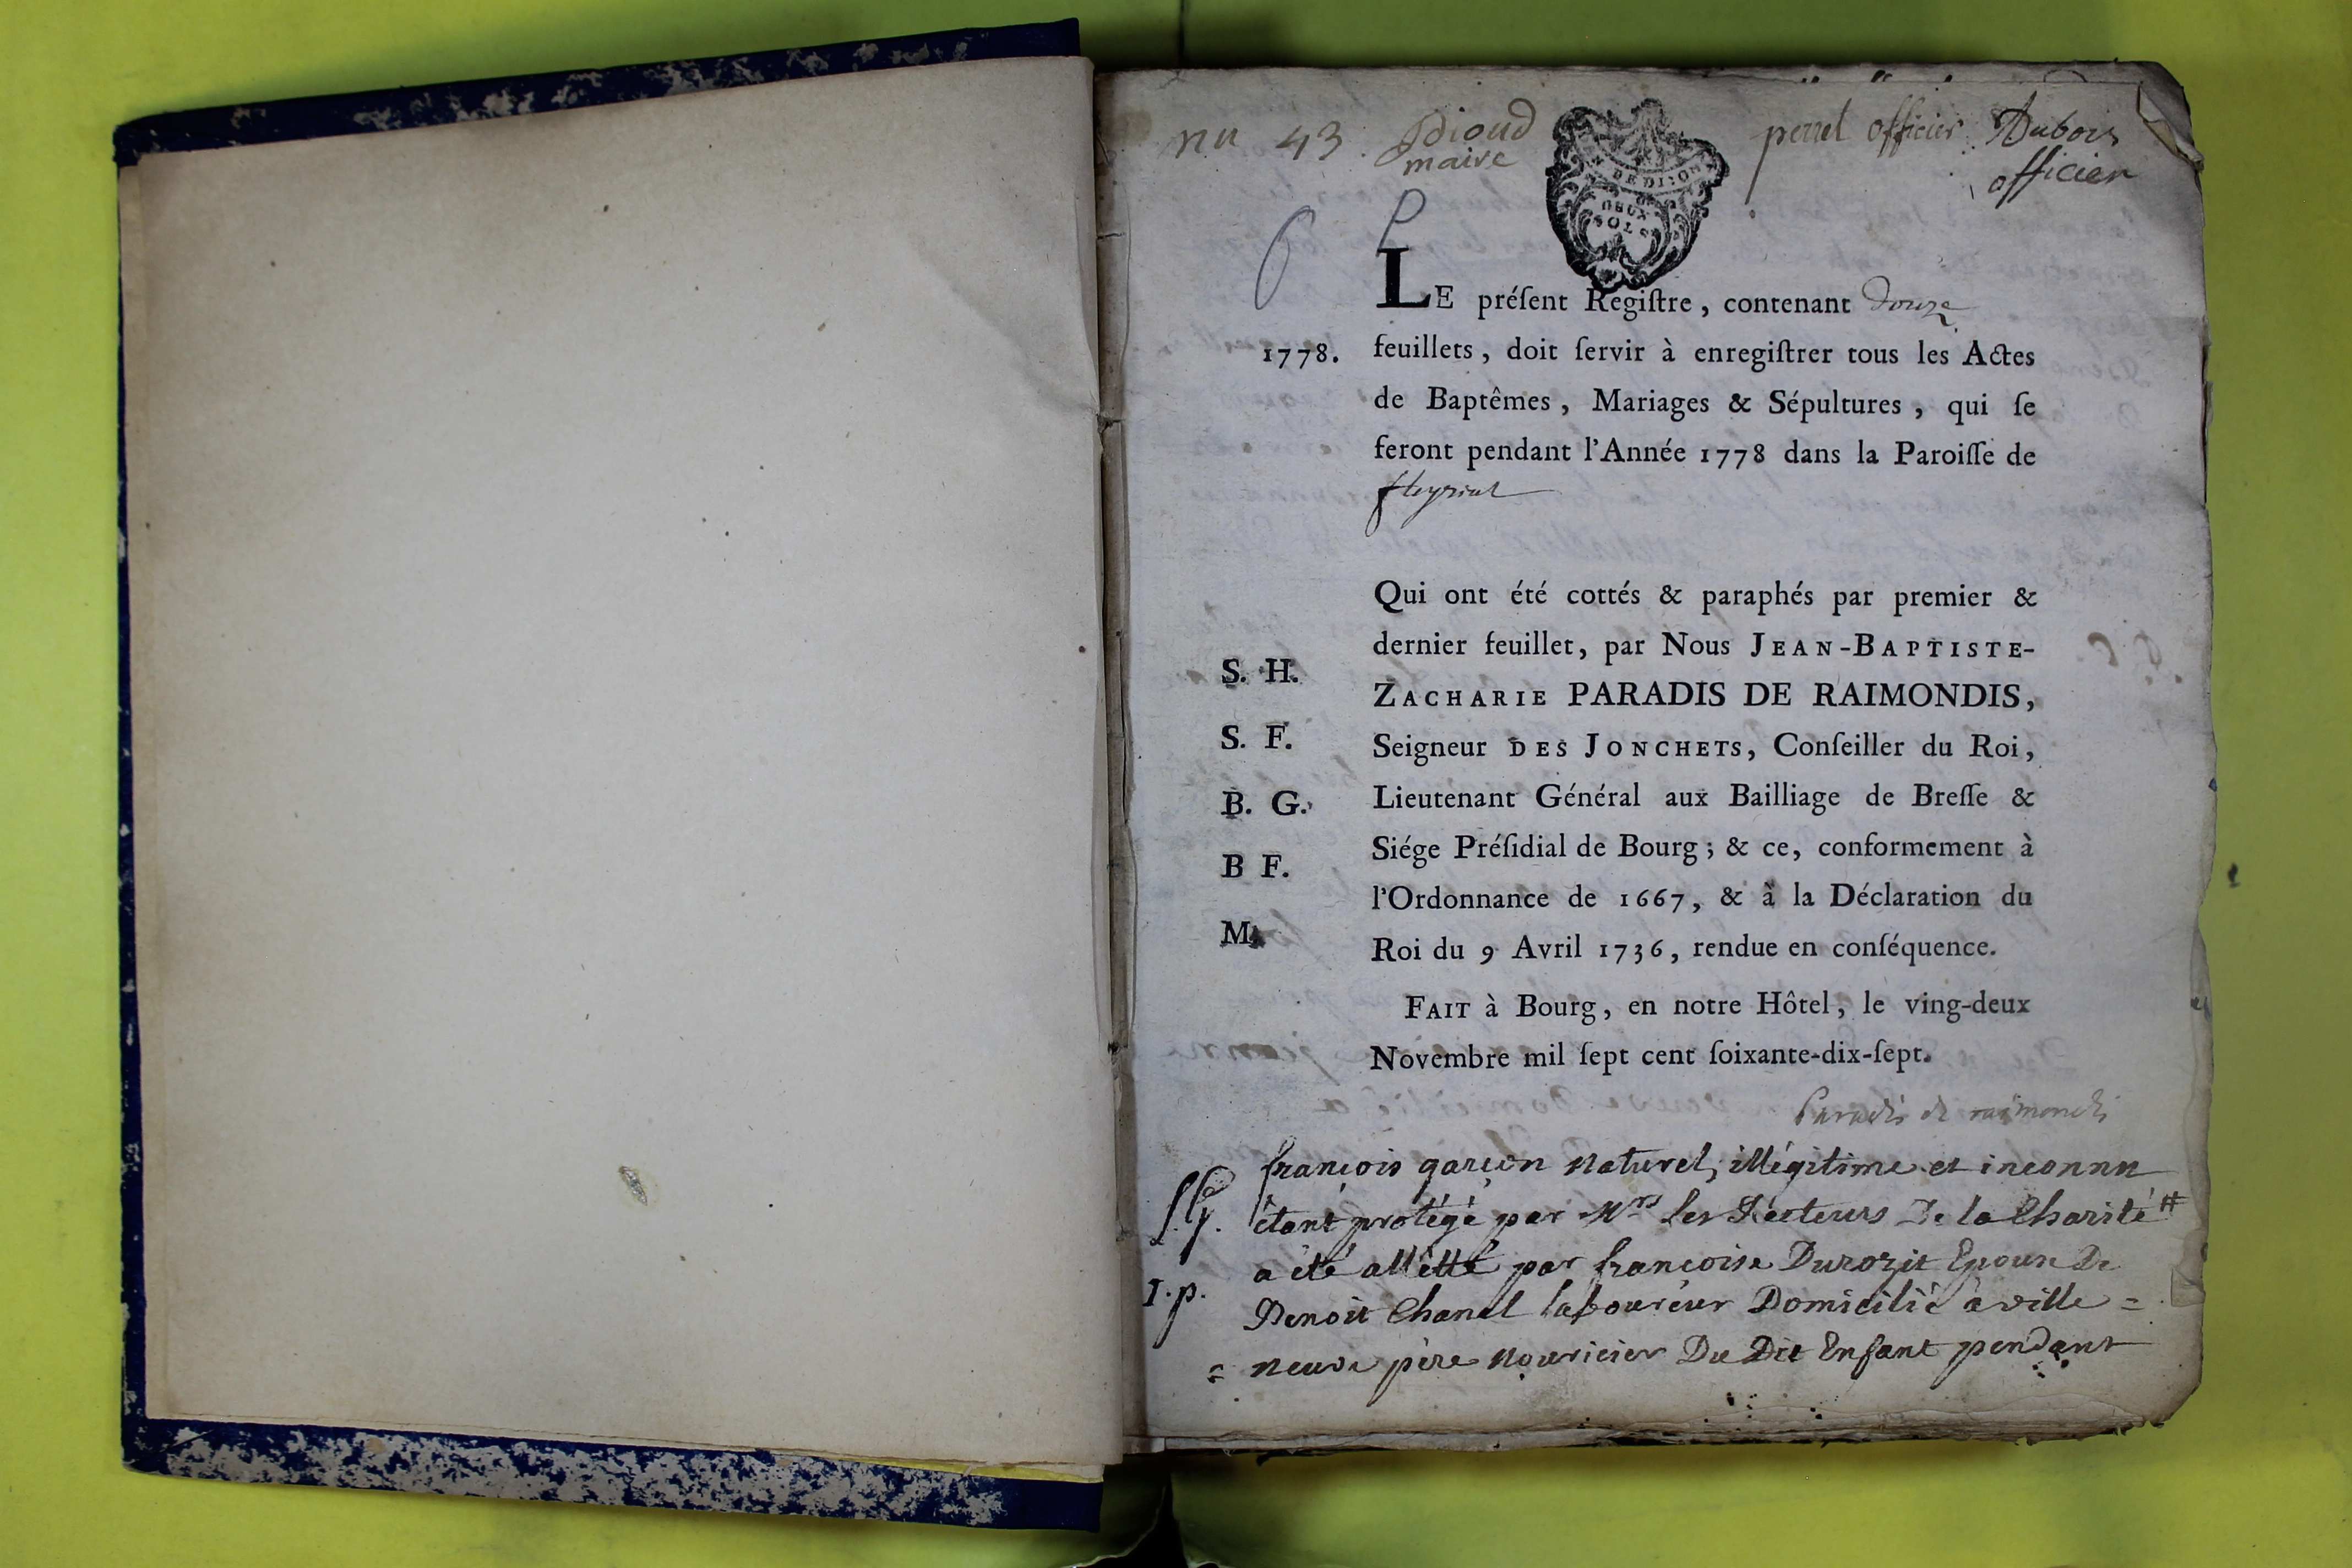 nu 43 Dioud perrel officier Dubois
maire officier
DE DIJON
DEUX
SOLS
LE préſent Regiſtre, contenant douze
1778. feuillets, doit ſervir à enregiſtrer tous les Actes
de Baptêmes, Mariages & Sépultures, qui ſe
feront pendant l'Année 1778 dans la Paroiſſe de
fleyriat
Qui ont été cottés & paraphés par premier &
dernier feuillet, par Nous JEAN-BAPTISTE-
S. H.
ZACHARIE PARADIS DE RAIMONDIS,
S. F. Seigneur DES JONCHETS, Conſeiller du Roi,
B. G. Lieutenant Général aux Bailliage de Breſſe &
Siége Préſidial de Bourg ; & ce, conformement à
B F.
l'Ordonnance de 1667, & à la Déclaration du
M.
Roi du 9 Avril 1736, rendue en conſéquence.
FAIT à Bourg, en notre Hôtel, le ving-deux
Novembre mil ſept cent ſoixante-dix-ſept.
Paradis de raimondis
françois garçon naturel, illégitime et inconnu
étant protégé par Mrs les Recteurs De la Charité #
a été allètté par françoise Durozit Epouse De
1.p. Benoit Chanel laboureur Domicilié à ville =
= neuve père nouricier Du Dit Enfant pendant